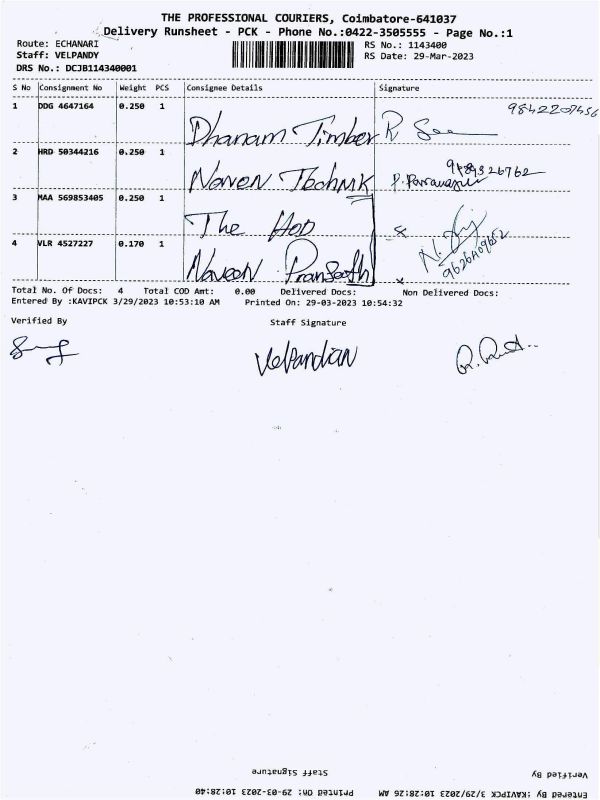 THE PROFESSIONAL COURIERS, Coimbatore-641037
Delivery Runsheet - PCK - Phone No.:0422-3505555 - Page No.:1
Route: ECHANARI RS No.: 1143400
Staff: VELPANDY RS Date: 29-Mar-2023
DRS No.: DCJB114340001
S No Consignment No Weight PCS Consignee Details Signature
1 DDG 4647164 0.250 1 Dhanam Timber R
2 HRD 50344216 0.250 1
3 MAA 569853405 0.250 1 The HOD
4 VLR 4527227 0.170 1 Naveen
Total No. Of Docs: 4 Total COD Amt: 0.00 Delivered Docs: Non Delivered Docs:
Entered By :KAVIPCK 3/29/2023 10:53:10 AM Printed On: 29-03-2023 10:54:32
Verified By Staff Signature
Velpandian
Staff Signature Verified By
Printed On: 29-03-2023 10:28:40 Entered By :KAVIPCK 3/29/2023 10:28:26 AM